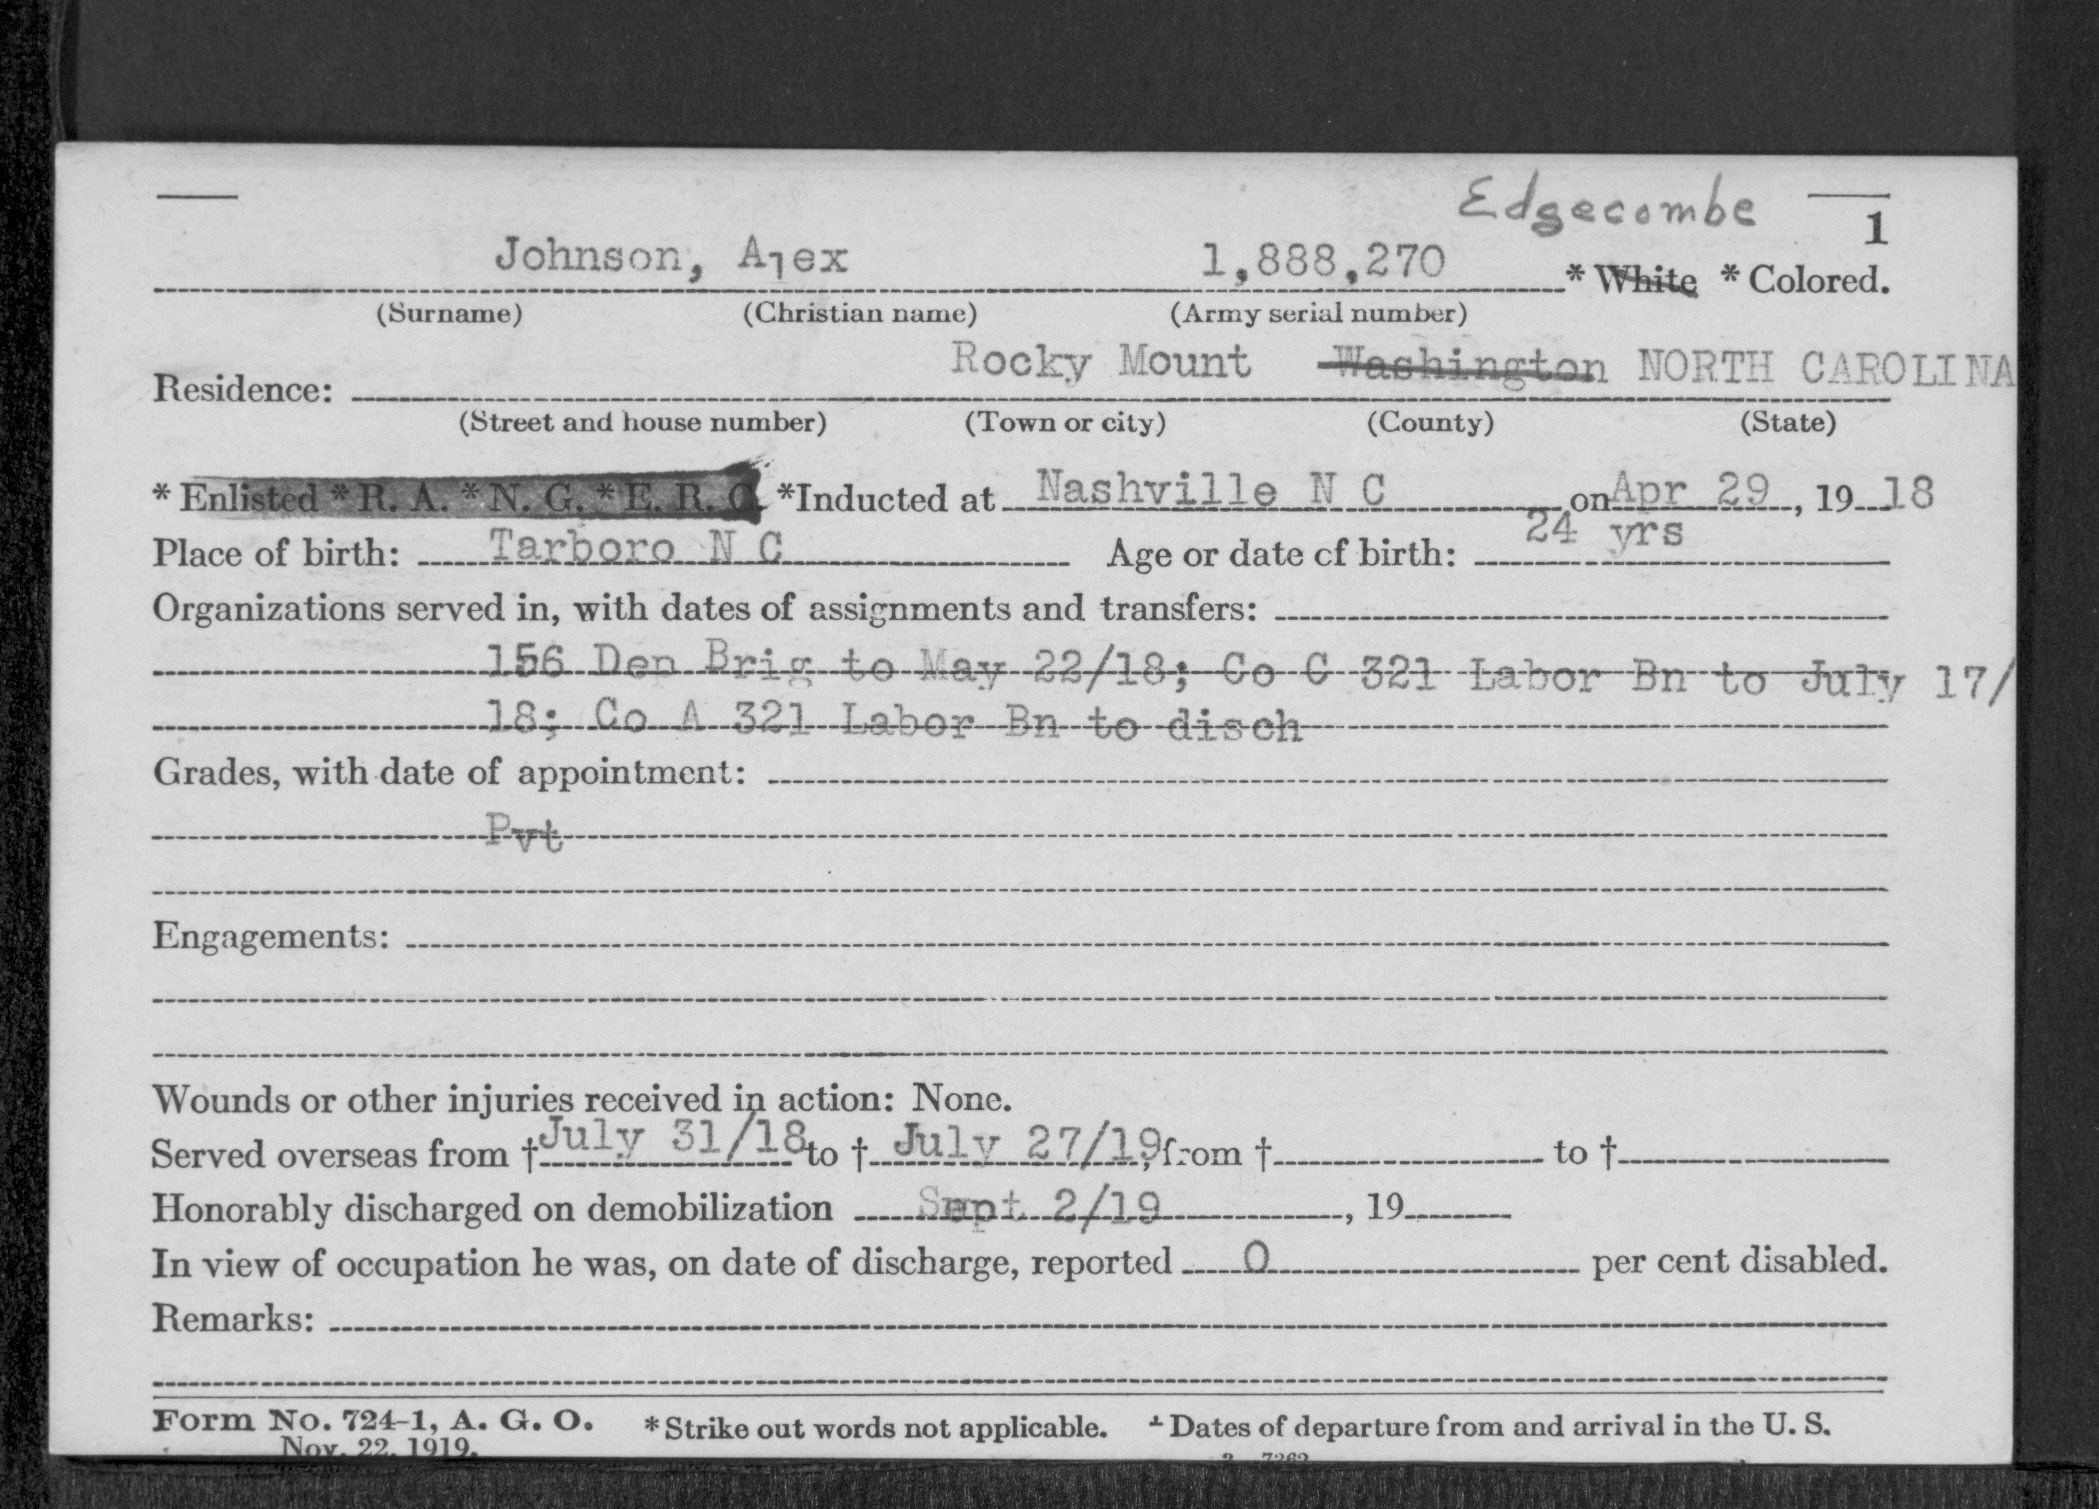 Edgecombe
1
Johnson, Alex 1,888,270 * White * Colored.
(Surname) (Christian name) (Army serial number)
Rocky Mount Washington NORTH CAROLINA
Residence:
(Street and house number) (Town or city) (County) (State)
* Enlisted * R. A. * N. G. * E. R. C. *Inducted at Nashville N C on Apr 29, 19 18
Place of birth: Tarboro N C Age or date of birth: 24 yrs
Organizations served in, with dates of assignments and transfers:
156 Dep Brig to May 22/18; Co C 321 Labor Bn to July 17/
18; Co A 321 Labor Bn to disch
Grades, with date of appointment:
Pvt
Engagements:
Wounds or other injuries received in action: None.
Served overseas from † July 31/18 to † July 27/19, from † to †
Honorably discharged on demobilization Sept 2/19, 19
In view of occupation he was, on date of discharge, reported 0 per cent disabled.
Remarks:
Form No. 724-1, A. G. O. * Strike out words not applicable. † Dates of departure from and arrival in the U. S.
Nov. 22, 1919.